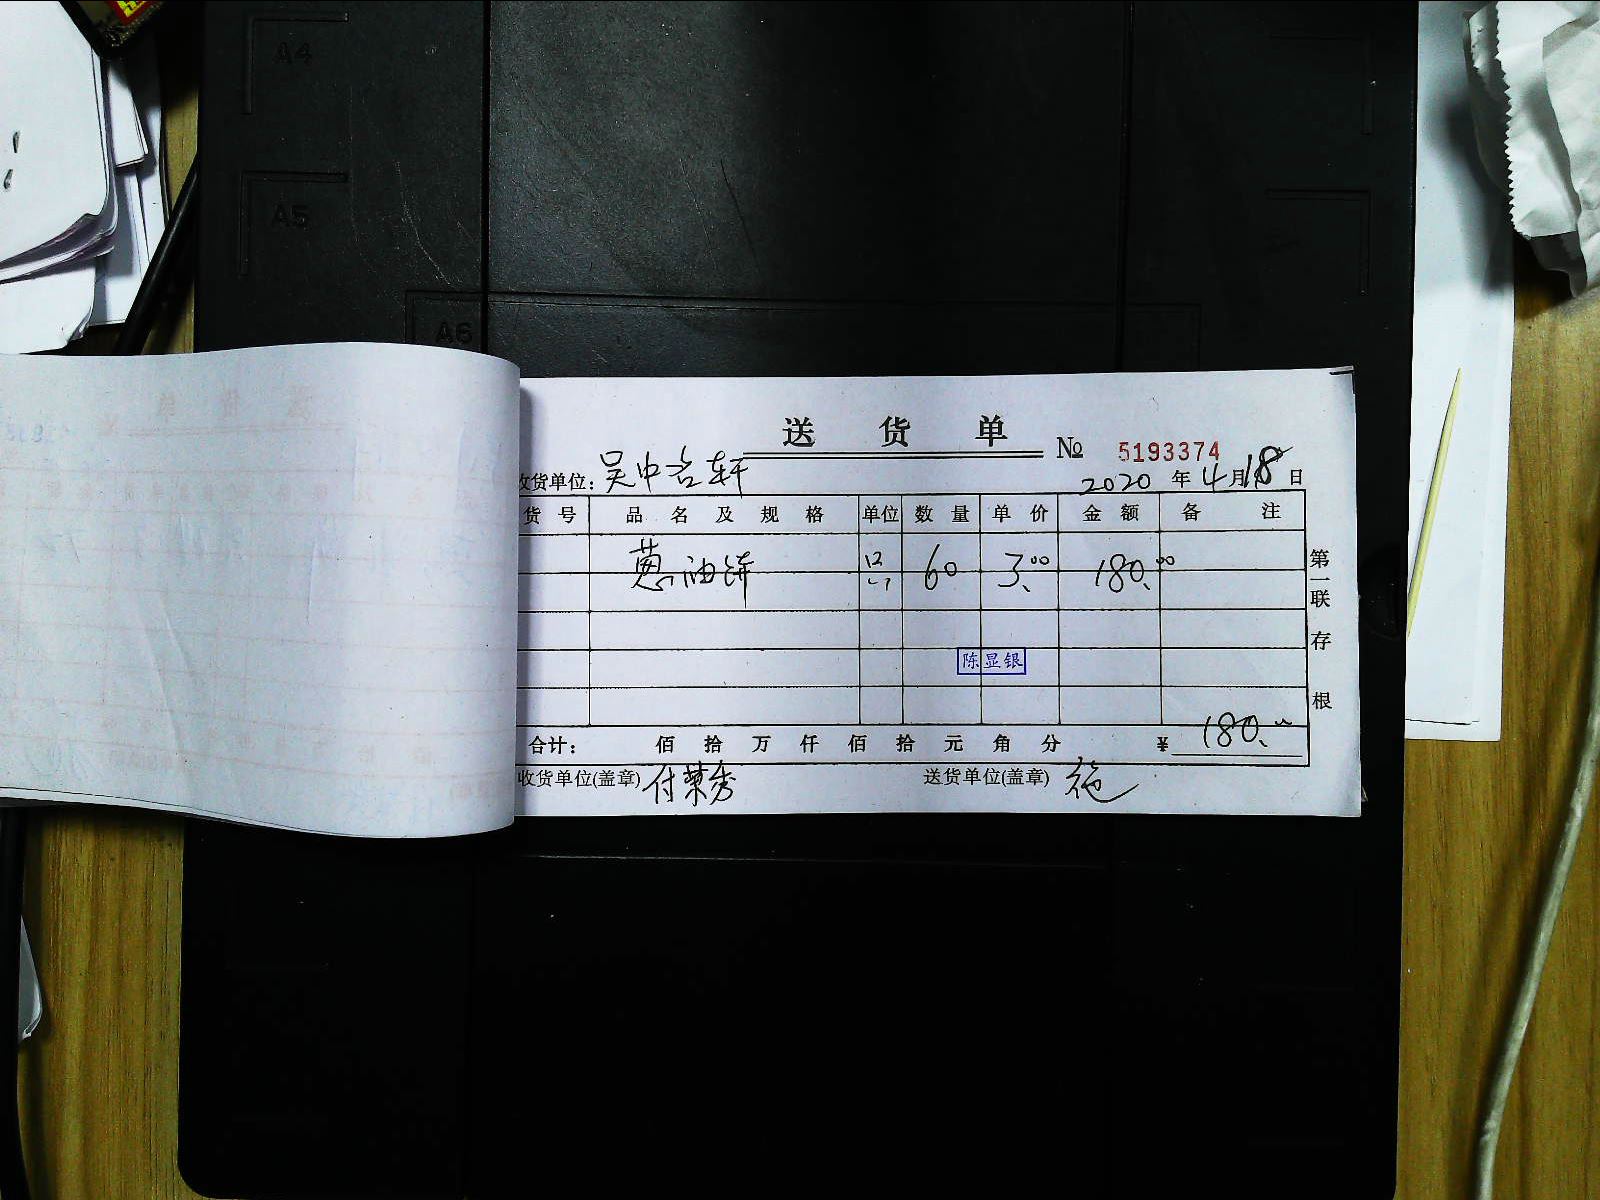 A4
A5
A6
送货单
№ 5193374
收货单位:吴中名轩 2020年4月18日
货号 品名及规格 单位 数量 单价 金额 备注
葱油饼 60 3.00 180.00
陈显银
第一联 存根
合计: 佰拾万仟佰拾元角分 ¥180.
收货单位(盖章)付荣秀 送货单位(盖章)施